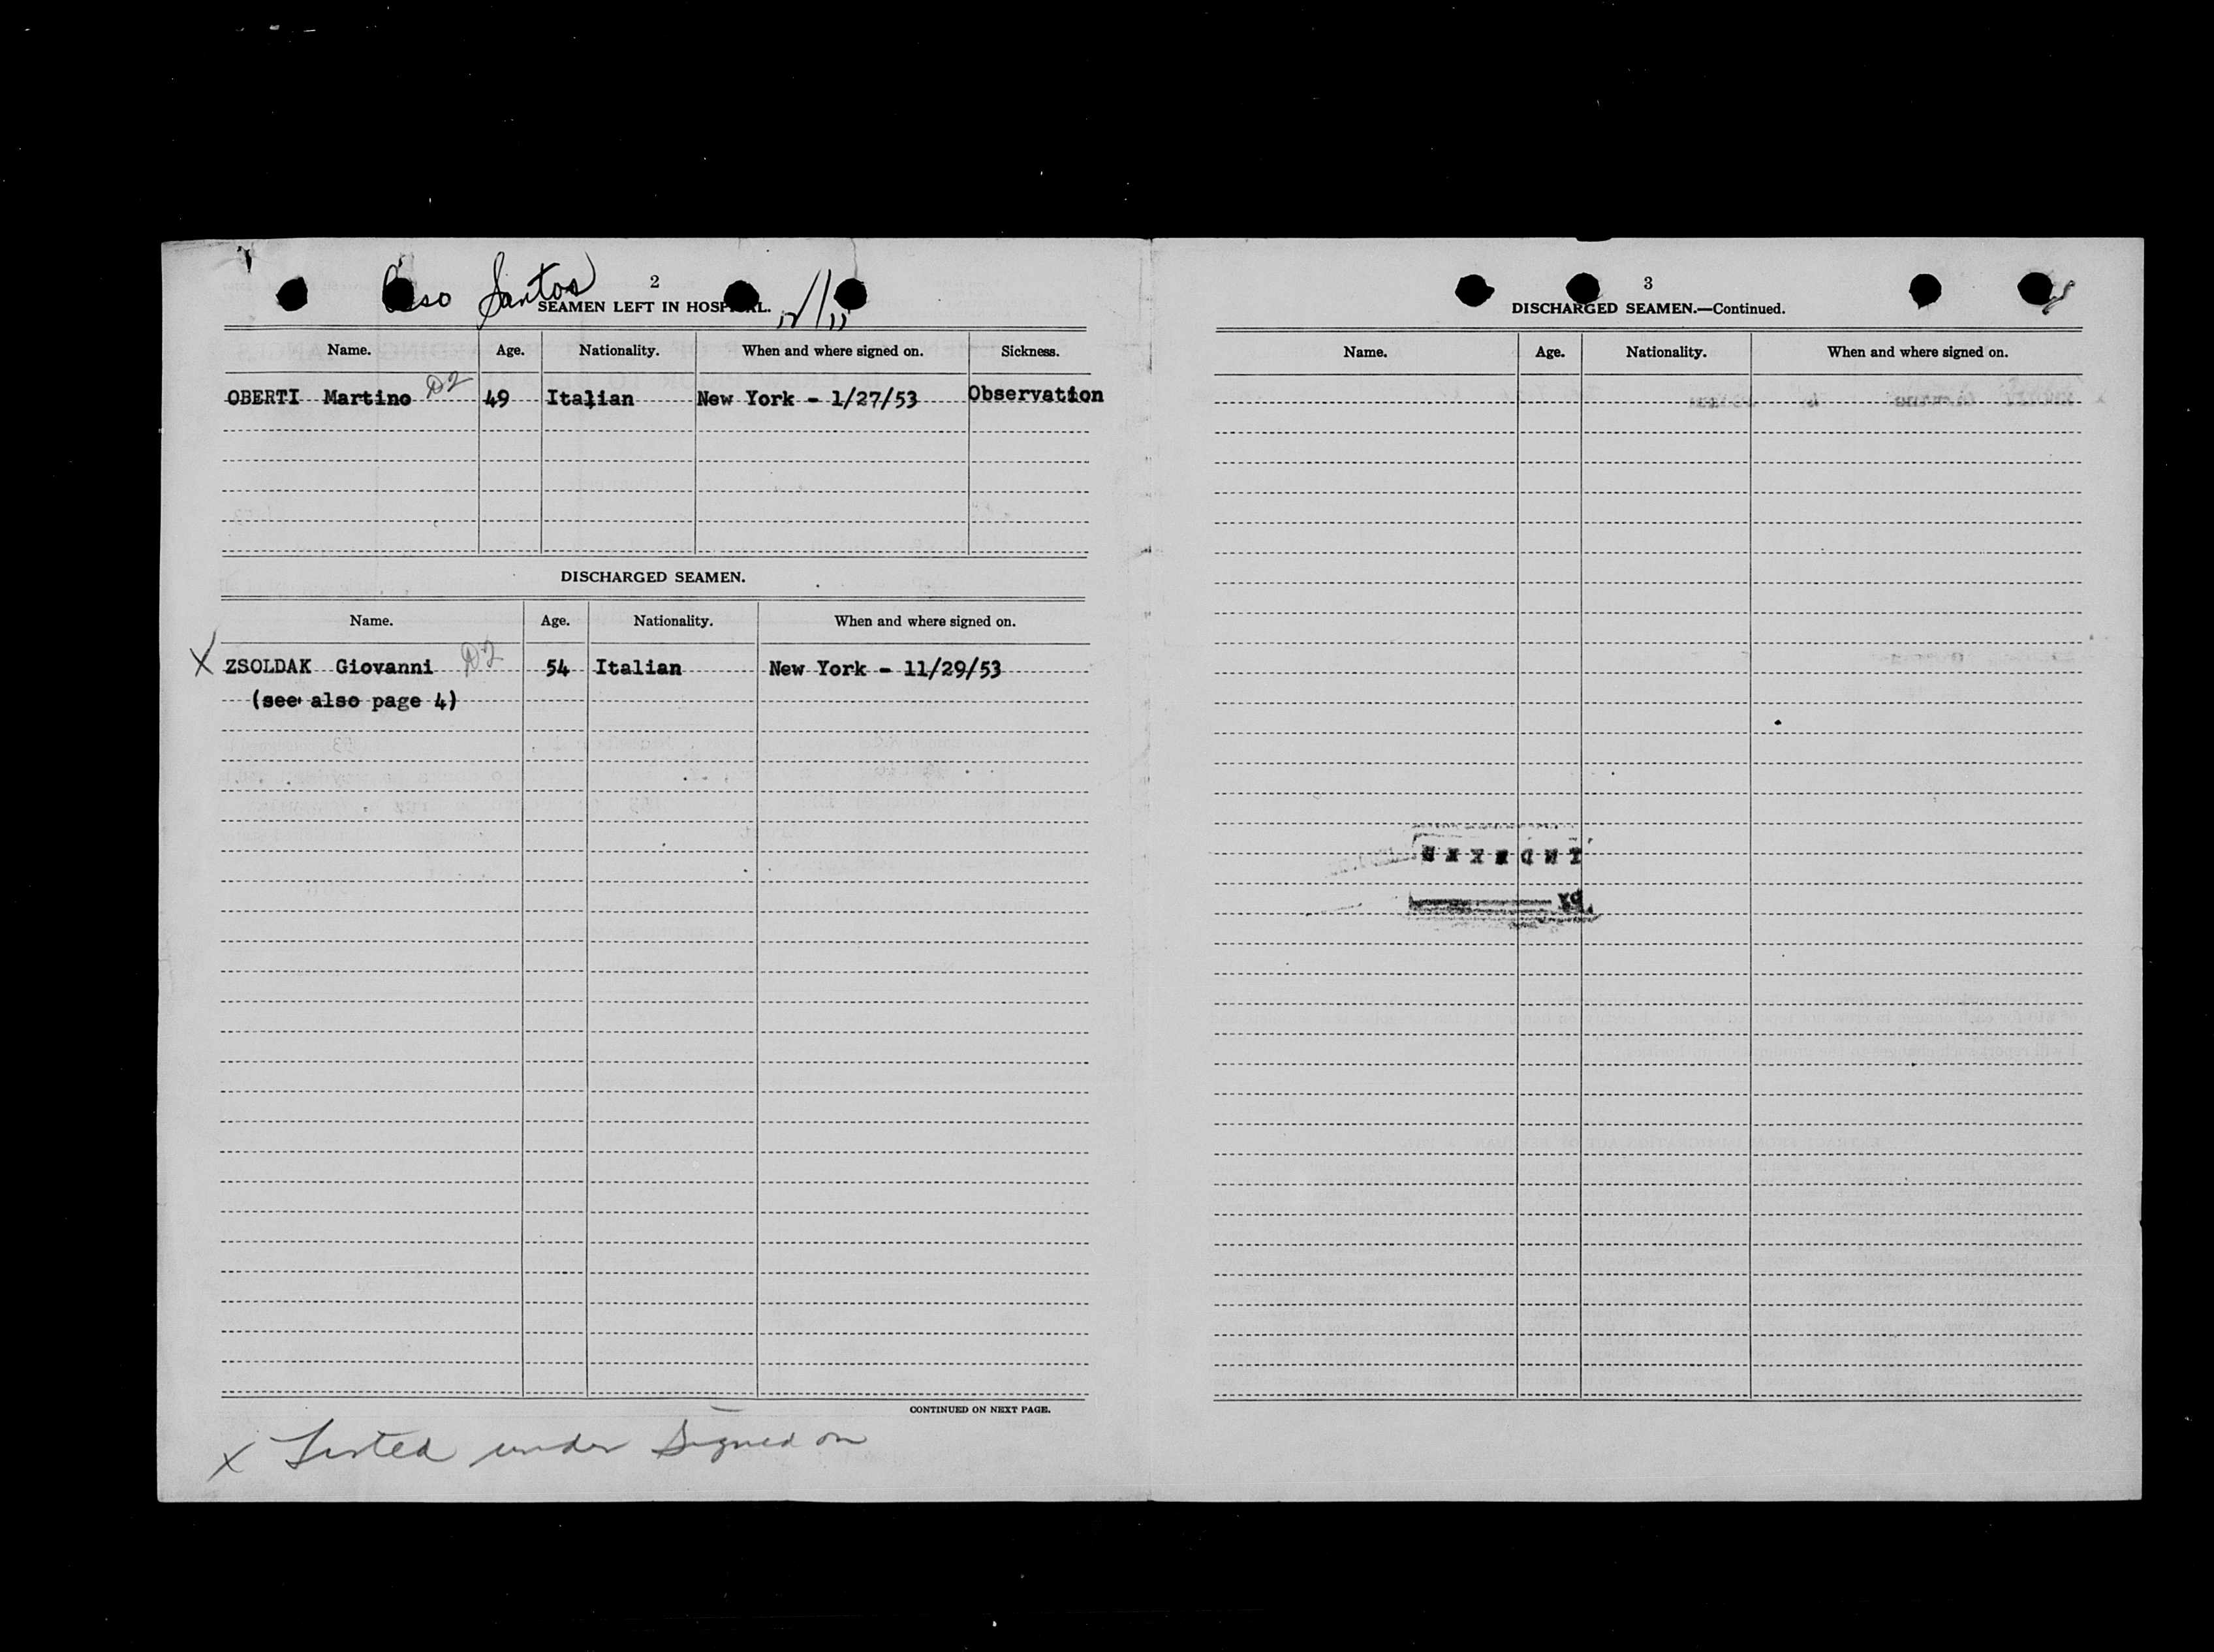 Esso Santos
2
SEAMEN LEFT IN HOSPITAL.
12/11
Name. Age. Nationality. When and where signed on. Sickness.
OBERTI Martino D2 49 Italian New York - 1/27/53 Observation
DISCHARGED SEAMEN.
Name. Age. Nationality. When and where signed on.
X ZSOLDAK Giovanni D2 54 Italian New York - 11/29/53
(see also page 4)
CONTINUED ON NEXT PAGE.
x Listed under Signed on
3
DISCHARGED SEAMEN.—Continued.
Name. Age. Nationality. When and where signed on.